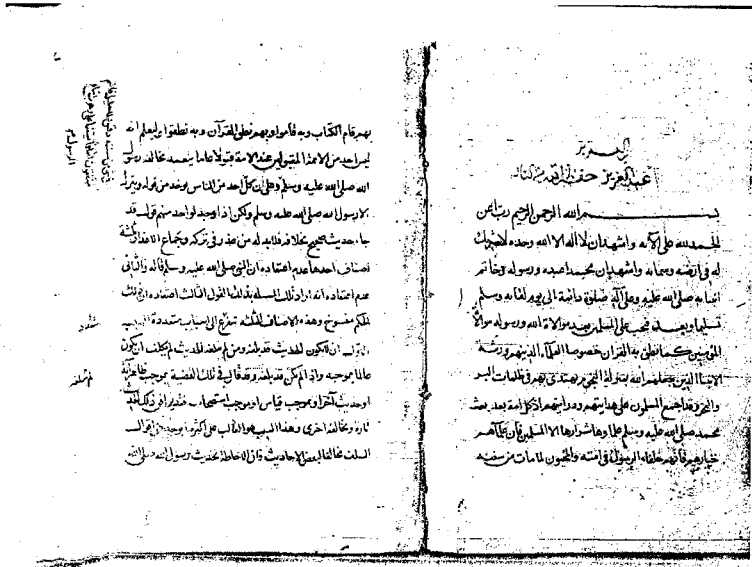 عبد العزيز
بسم الله الرحمن الرحيم رب أعن
الحمد لله على آلائه واشهد ان لا اله الا الله وحده لا شريك
له في ارضه وسمائه واشهد ان محمدا عبده ورسوله وخاتم
انبيائه صلى الله عليه وعلى آله صلوة دائمة الى يوم لقائه وسلم
تسليما وبعد فيجب على المسلمين بعد موالاة الله ورسوله موالاة
المؤمنين كما نطق به القرآن خصوصا العلماء الذين هم ورثة
الانبياء الذين جعلهم الله بمنزلة النجوم يهتدى بهم في ظلمات البر
والبحر وقد اجمع المسلمون على هدايتهم ودرايتهم اذ كل امة بعد بعث
محمد صلى الله عليه وسلم علماوها شرارها الا المسلمين فان علماءهم
خيارهم فانهم خلفاء الرسول في امته والمحيون لما مات من سنته
بهم قام الكتاب وبه قاموا وبهم نطق القرآن وبه نطقوا وليعلم انه
ليس احد من الائمة المقبولين عند الامة قبولا عاما يتعمد مخالفة رسول
الله صلى الله عليه وسلم وعلى ان كل احد من الناس يوخذ من قوله ويترك
الا رسول الله صلى الله عليه وسلم ولكن اذا وجد لواحد منهم قول قد
جاء حديث صحيح بخلافه فلا بد له من عذر في تركه وجماع الاعذار ثلثة
اصناف احدها عدم اعتقاده ان النبي صلى الله عليه وسلم قاله والثاني
عدم اعتقاده انه اراد تلك المسئلة بذلك القول الثالث اعتقاده ان ذلك
الحكم منسوخ وهذه الاصناف الثلثة تتفرع الى اسباب متعددة السبب
الاول ان لا يكون الحديث قد بلغه ومن لم يبلغه الحديث لم يكلف ان يكون
عالما بموجبه واذا لم يكن قد بلغه وقد قال في تلك القضية بموجب ظاهر آية
او حديث آخر او بموجب قياس او موجب استصحاب فقد يوافق ذلك الحديث
تارة ويخالفه اخرى وهذا السبب هو الغالب على اكثر ما يوجد من اقوال
السلف مخالفا لبعض الاحاديث فان الاحاطة بحديث رسول الله صلى الله